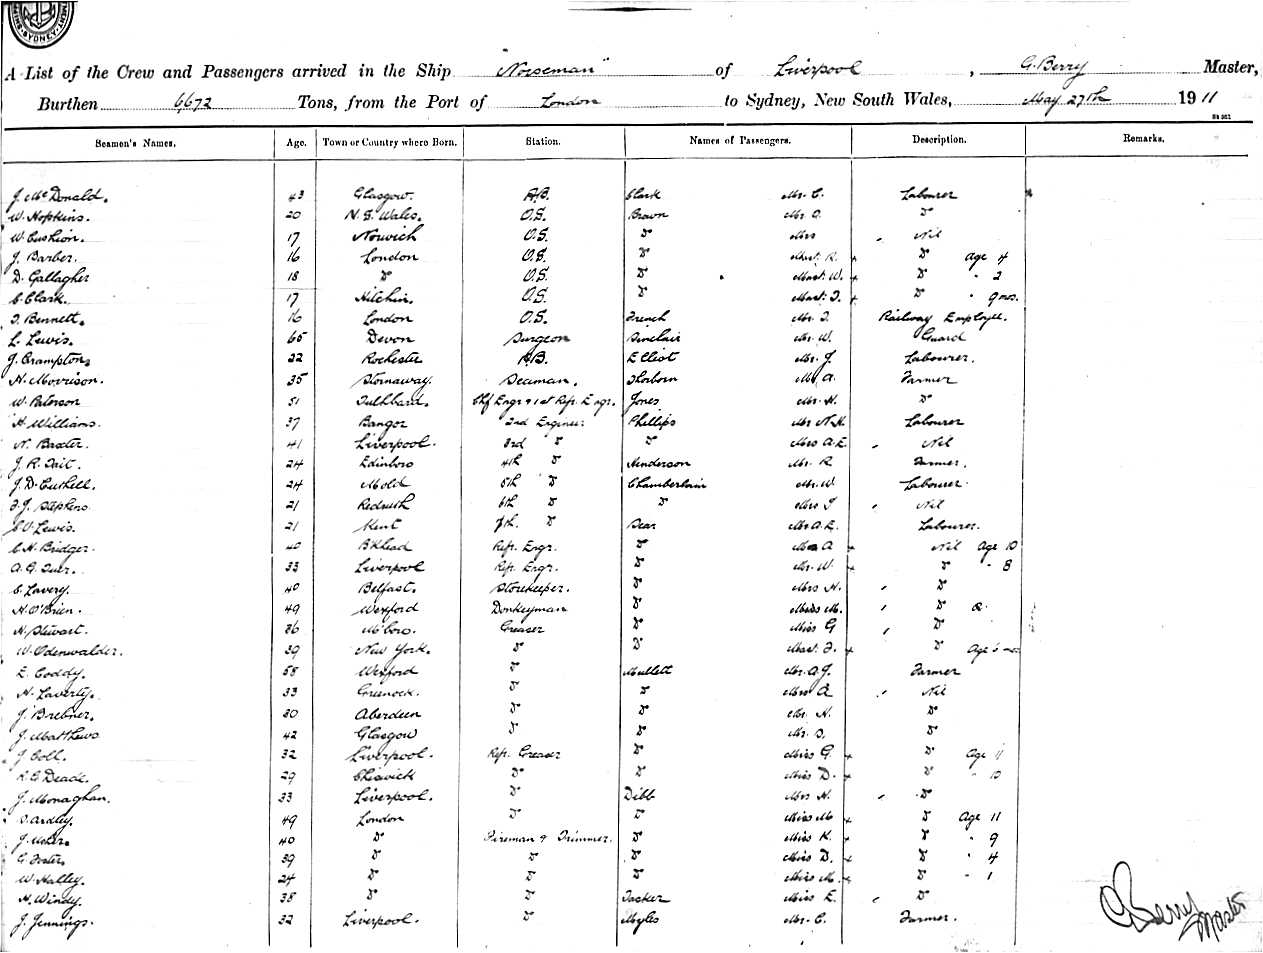 SYDNEY
A List of the Crew and Passengers arrived in the Ship "Norseman" of Liverpool, G. Berry Master,
Burthen 6672 Tons, from the Port of London to Sydney, New South Wales, May 27th 1911
Seamen's Names. Age. Town or Country where Born. Station. Names of Passengers. Description. Remarks.
J. McDonald. 43 Glasgow. A.B. Clark Mr. C. Labourer
W. Hopkins. 20 N. S. Wales. O.S. Brown Mr. D
W. Cushion. 17 Norwich O.S. D Mrs Nil
J. Barber. 16 London O.S. D Mast. R. D Age 4
D. Gallagher 18 D O.S. D Mast. W. D " 2
C. Clark. 17 Hitchin. O.S. D Mast. D " 9 mos.
Bennett. 16 London O.S. French Mr. Railway Employee.
L. Lewis. 65 Devon Surgeon Sinclair Mr. W. Guard
J. Crampton. 22 Rochester A.B. Elliot Mr. J. Labourer.
H. Morrison. 35 Stornaway. Seaman. Thorborn Mr A. Farmer
W. Paterson 51 Chf Engr & 1st Refr. Engr. Jones Mr. H. D
H. Williams. 37 Bangor 2nd Engineer Phillips Mr N.H. Labourer
N. Baxter. 41 Liverpool. 3rd D D Mrs A.E. Nil
J. R. Tait. 24 Edinboro 4th D Henderson Mr. R. Farmer.
J. D. Cuthell. 24 Mold 5th D Chamberlain Mr. W Labourer
J. Stephens 21 Redruth 6th D D Mrs Nil
Lewis. 21 Kent 7th. D Dear Mr A. E. Labourer.
C. H. Bridger. 40 B'Khead Refr. Engr. D A Nil Age 10
A. G. 33 Liverpool Refr. Engr. D Mr. W. D " 8
C. Lavery. 40 Belfast. Storekeeper. D Mrs H. D
H. O'Brien. 49 Wexford Donkeyman D Miss M. D
H. Stewart. 36 M'boro. Greaser D Miss G D
W. Odenwalder. 39 New York. D D Mast. D Age 6 mos
E. Coddy. 58 Wexford D Mullett Mr. A. J. Farmer
H. Laverty. 33 Greenock. D D Mrs A Nil
J. Brebner. 30 Aberdeen D D Mr. H. D
J. Matthews 42 Glasgow D D Mr. D
J. Coll. 32 Liverpool. Refr. Greaser D Miss G. D Age 11
Deade. 29 Chiswick D D Miss D. D " 10
J. Monaghan. 33 Liverpool. D Dibb Mrs H. D
Ardley. 49 London D D Miss M D Age 11
J. Usher. 40 D Fireman & Trimmer. D Miss K. D " 9
G. Foster. 39 D D D Miss D. D " 4
W. Halley. 24 D D D Miss M. D " 1
H. Windy. 38 D D Tasker Miss E. D
J. Jennings. 32 Liverpool. D Myles Mr. C. Farmer.
G Berry
Master